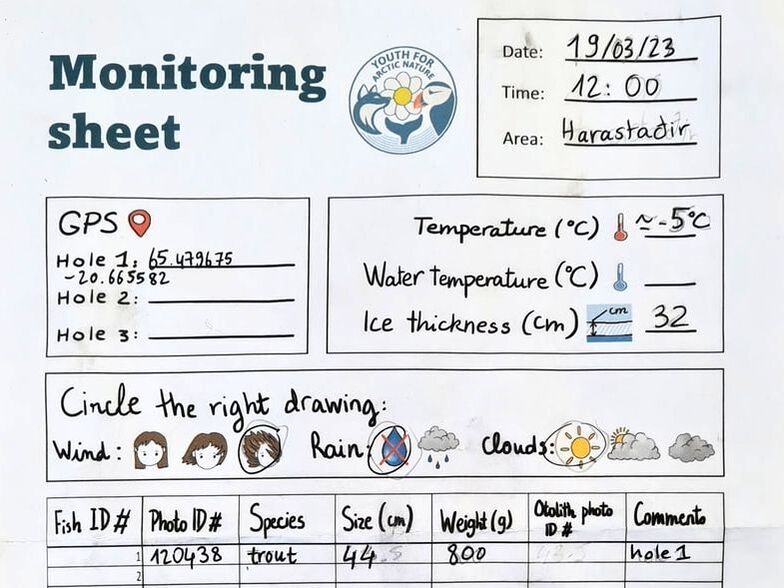 Monitoring
sheet
YOUTH FOR
ARCTIC NATURE
Date: 19/03/23
Time: 12:00
Area: Harastaðir
GPS
Hole 1: 65.479675
-20.665582
Hole 2:
Hole 3:
Temperature (°C) ≈-5°C
Water temperature (°C)
Ice thickness (cm) cm 32
Circle the right drawing:
Wind: Rain: Clouds:
Fish ID# Photo ID# Species Size (cm) Weight (g) Otolith photo ID # Comments
1 120438 trout 44 800 hole 1
2